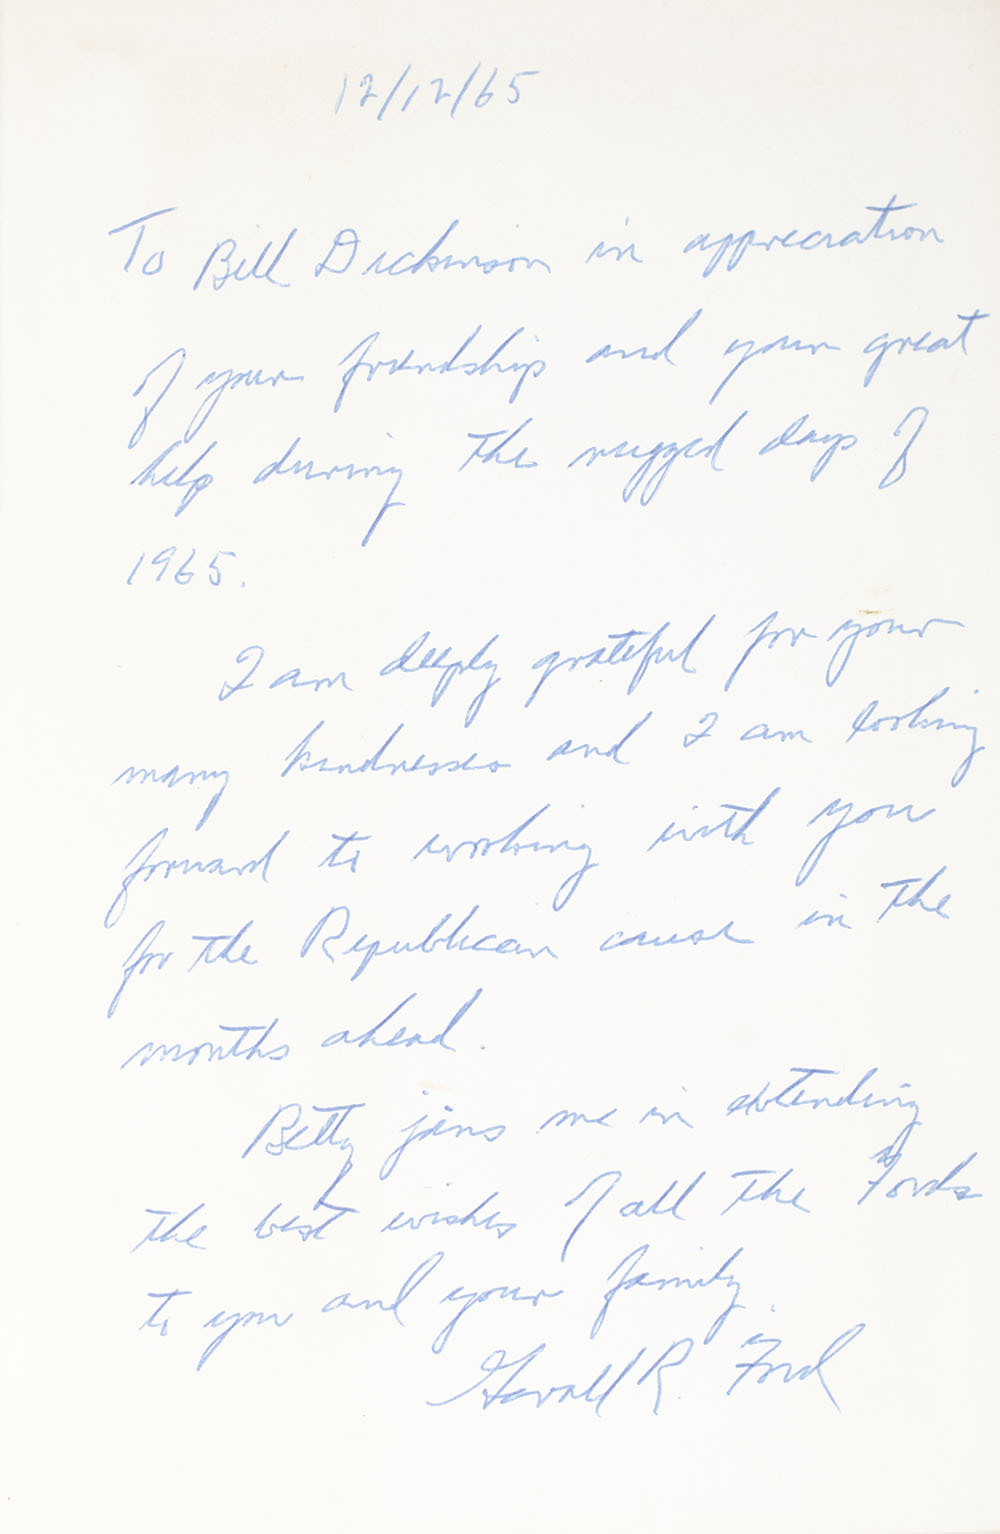 12/12/65
To Bill Dickinson in appreciation
of your friendship and your great
help during the rugged days of
1965.
I am deeply grateful for your
many kindnesses and I am looking
forward to working with you
for the Republican cause in the
months ahead.
Betty joins me in extending
the best wishes of all the Fords
to you and your family.
Gerald R. Ford